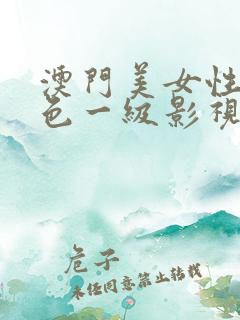 澳門美女性
色一級影視
危子
未经同意禁止转载